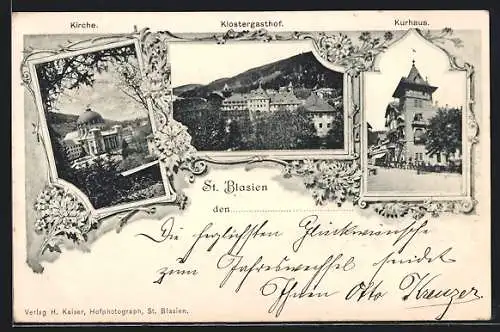 Kirche.
Klostergasthof.
Kurhaus.
St. Blasien
den
Die herzlichsten Glückwünsche
zum Jahreswechsel sendet
Ihnen Otto Kreuzer.
Verlag H. Kaiser, Hofphotograph, St. Blasien.